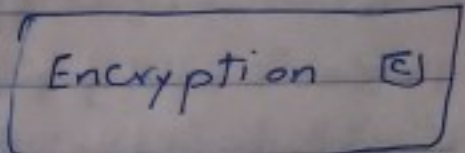 Encryption C